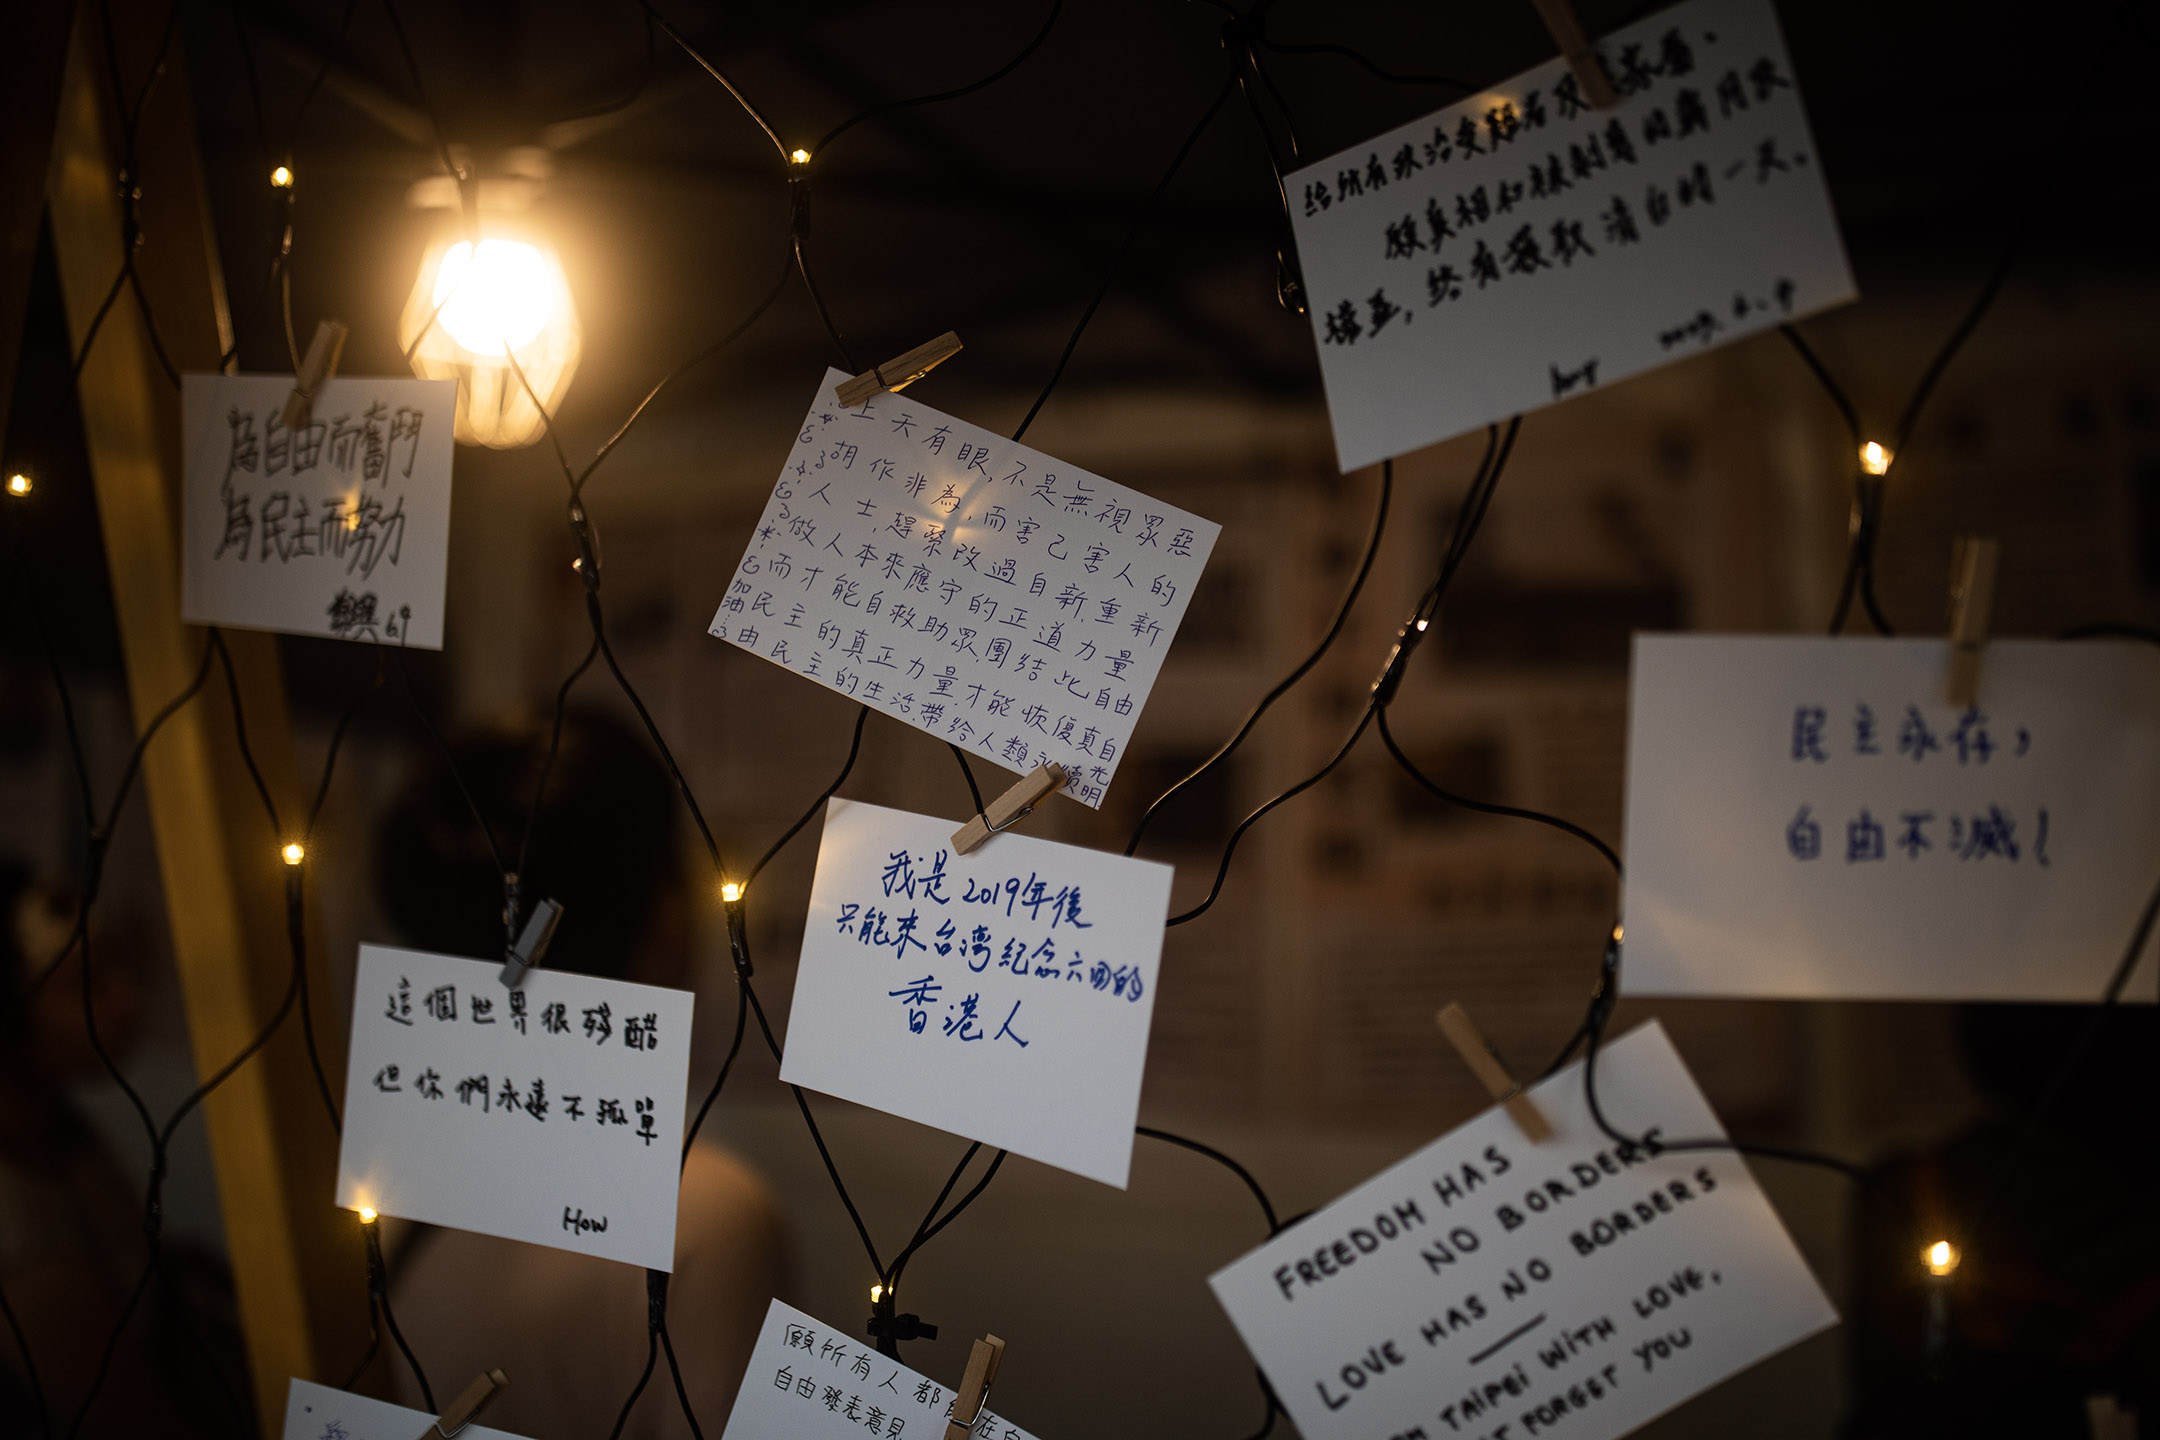 給所有政治受難者及其家屬、
願真相和被剝奪的歲月跌
撞至，終有獲取清白的一天。
為自由而奮鬥
為民主而努力
6.9
上天有眼,不是無視眾惡
胡作非為,而害己害人的
人士,趕緊改過自新.重新
做人本來應守的正道力量
而才能自救助眾.團結此自由
民主的真正力量.才能恢復真自
由民主的生活.帶給人類永續光
明
加油
民主永存，
自由不滅！
我是2019年後
只能來台灣紀念六四的
香港人
這個世界很殘酷
但你們永遠不孤單
How
FREEDOM HAS
NO BORDERS
LOVE HAS NO BORDERS
TAIPEI WITH LOVE,
FORGET YOU
願所有人都在
自由發表意見